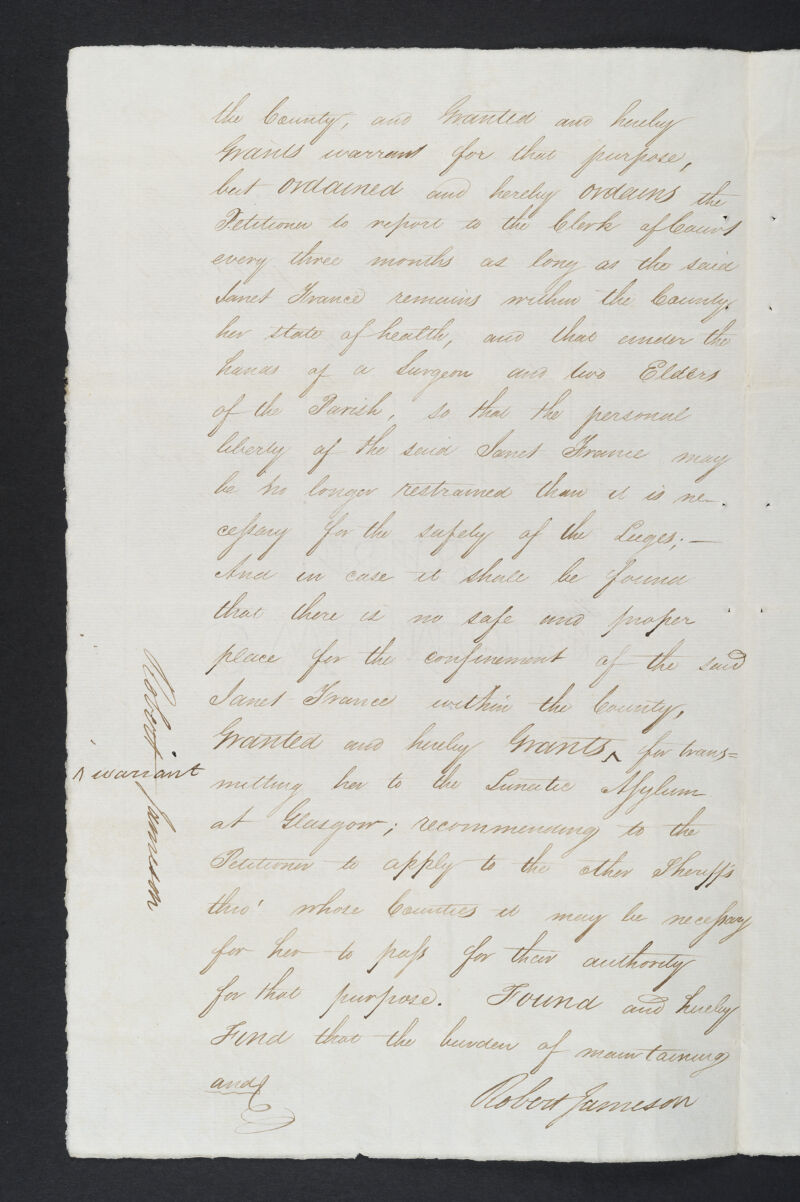 the County, and Granted and hereby
Grants warrant for that purpose,
but ordained and hereby ordains the
Petitioner to report to the Clerk of Court
every three months as long as the said
Janet France remains within the County
her state of health, and that under the
hands of a Surgeon and two Elders
of the Parish, so that the personal
liberty of the said Janet France may
be no longer restrained than it is ne-
cessary for the safety of the Lieges; —
And in case it shall be found
that there is no safe and proper
place for the confinement of the said
Janet France within the County,
Granted and hereby Grants ^ for trans=
^ warrant
mitting her to the Lunatic Asylum
at Glasgow; recommending to the
Petitioner to apply to the other Sheriffs
thro' whose Counties it may be necessary
for her to pass for their authority
for that purpose. Found and hereby
Find that the burden of maintaining
and
Robert Jameson
Robert Jameson